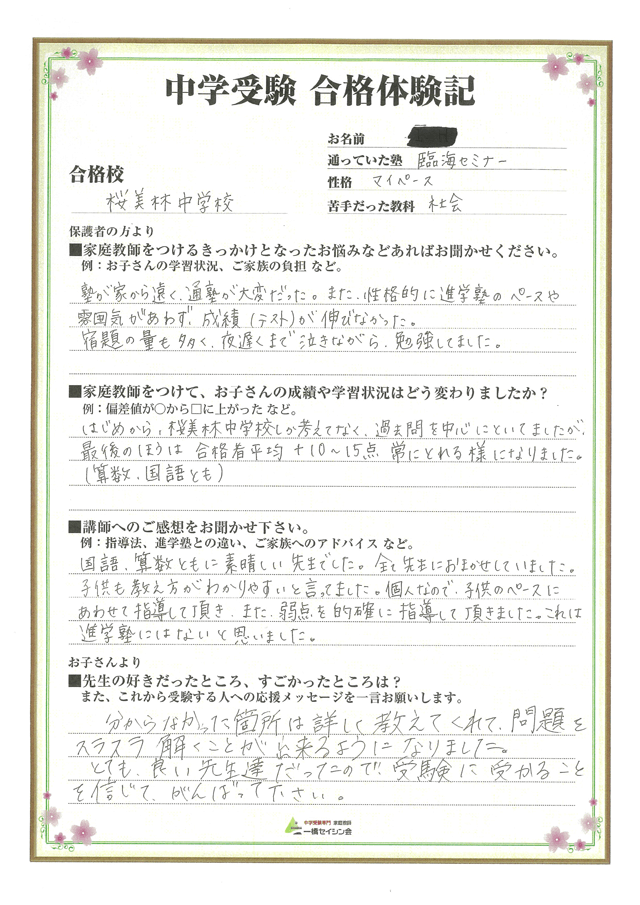 中学受験 合格体験記
お名前
通っていた塾 臨海セミナー
性格 マイペース
苦手だった教科 社会
合格校
桜美林中学校
保護者の方より
■家庭教師をつけるきっかけとなったお悩みなどあればお聞かせください。
例：お子さんの学習状況、ご家族の負担 など。
塾が家から遠く、通塾が大変だった。また、性格的に進学塾のペースや
雰囲気があわず、成績（テスト）が伸びなかった。
宿題の量も多く、夜遅くまで泣きながら、勉強してました。
■家庭教師をつけて、お子さんの成績や学習状況はどう変わりましたか？
例：偏差値が○から□に上がった など。
はじめから、桜美林中学校しか考えてなく、過去問を中心にといてましたが、
最後のほうは 合格者平均 +10〜15点 常にとれる様になりました。
（算数、国語とも）
■講師へのご感想をお聞かせ下さい。
例：指導法、進学塾との違い、ご家族へのアドバイス など。
国語、算数ともに素晴しい先生でした。全て先生におまかせしていました。
子供も教え方がわかりやすいと言ってました。個人なので、子供のペースに
あわせて指導して頂き、また、弱点を的確に指導して頂きました。これは
進学塾にはないと思いました。
お子さんより
■先生の好きだったところ、すごかったところは？
また、これから受験する人への応援メッセージを一言お願いします。
分からなかった箇所は詳しく教えてくれて、問題を
スラスラ解くことが出来るようになりました。
とても、良い先生達だったので、受験に受かること
を信じて、がんばって下さい。
中学受験専門 家庭教師
一橋セイシン会